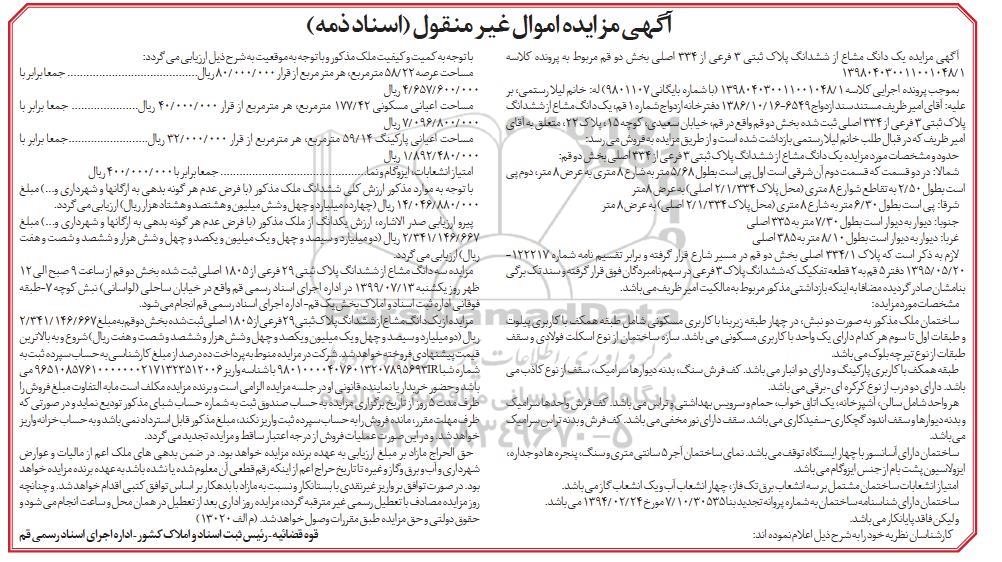 آگهی مزایده اموال غیر منقول (اسناد ذمه)
آگهی مزایده یک دانگ مشاع از ششدانگ پلاک ثبتی ۳ فرعی از ۳۳۴ اصلی بخش دو قم مربوط به پرونده کلاسه
۱۳۹۸۰۴۰۳۰۰۱۱۰۰۱۰۴۸/۱
بموجب پرونده اجرایی کلاسه ۱۳۹۸۰۴۰۳۰۰۱۱۰۰۱۰۴۸/۱ (با شماره بایگانی ۹۸۰۱۱۰۷) له: خانم لیلا رستمی، بر
علیه: آقای امیر ظریف مستند سند ازدواج ۶۵۴۹-۱۳۸۶/۱۰/۱۶ دفترخانه ازدواج شماره ۱ قم، یک دانگ مشاع از ششدانگ
پلاک ثبتی ۳ فرعی از ۳۳۴ اصلی ثبت شده بخش دو قم واقع در قم، خیابان سعیدی، کوچه ۱۵، پلاک ۲۲، متعلق به آقای
امیر ظریف که در قبال طلب خانم لیلا رستمی بازداشت شده است و از طریق مزایده به فروش می‌رسد:
حدود و مشخصات مورد مزایده یک دانگ مشاع از ششدانگ پلاک ثبتی ۳ فرعی از ۳۳۴ اصلی بخش دو قم:
شمالا: در دو قسمت که قسمت دوم آن شرقی است اول پی است بطول ۵/۶۸ متر به شارع ۸ متری به عرض ۸ متر، دوم پی
است بطول ۲/۵۰ به تقاطع شوارع ۸ متری (محل پلاک ۲/۱/۳۳۴ اصلی) به عرض ۸ متر
شرقا: پی است بطول ۶/۳۰ متر به شارع ۸ متری (محل پلاک ۲/۱/۳۳۴ اصلی) به عرض ۸ متر
جنوبا: دیوار به دیوار است بطول ۷/۳۰ متر به ۳۳۵ اصلی
غربا: دیوار به دیوار است بطول ۸/۱۰ متر به ۳۸۵ اصلی
لازم به ذکر است که پلاک ۳۳۴/۱ اصلی بخش دو قم در مسیر شارع قرار گرفته و برابر تقسیم نامه شماره ۱۲۲۲۱۷-
۱۳۹۵/۰۵/۲۰ دفتر ۵ قم به ۲ قطعه تفکیک که ششدانگ پلاک ۳ فرعی در سهم نامبردگان فوق قرار گرفته و سند تک برگی
بنامشان صادر گردیده مضافا به اینکه بازداشتی مذکور مربوط به مالکیت امیر ظریف می‌باشد.
مشخصات مورد مزایده:
ساختمان ملک مذکور به صورت دو نبش، در چهار طبقه زیربنا با کاربری مسکونی شامل طبقه همکف با کاربری پیلوت
و طبقات اول تا سوم هر کدام دارای یک واحد با کاربری مسکونی می باشد. سازه ساختمان از نوع اسکلت فولادی و سقف
طبقات از نوع تیرچه بلوک می‌باشد.
طبقه همکف با کاربری پارکینگ و دارای دو انبار می باشد. کف فرش سنگ، بدنه دیوارها سرامیک، سقف از نوع کاذب می
باشد. دارای دو درب از نوع کرکره ای-برقی می باشد.
هر واحد شامل سالن، آشپزخانه، یک اتاق خواب، حمام و سرویس بهداشتی و تراس می باشد. کف فرش واحدها سرامیک
و بدنه دیوارها و سقف اندود گچکاری-سفیدکاری می باشد. سقف دارای نور مخفی می باشد. کف فرش و بدنه تراس سرامیک
می‌باشد.
ساختمان دارای آسانسور با چهار ایستگاه توقف می باشد. نمای ساختمان آجر ۵ سانتی متری و سنگ، پنجره ها دوجداره،
ایزولاسیون پشت بام از جنس ایزوگام می باشد.
امتیاز انشعابات ساختمان مشتمل بر سه انشعاب برق تک فاز، چهار انشعاب آب و یک انشعاب گاز می باشد.
ساختمان دارای شناسنامه ساختمان به شماره پروانه تجدید بنا ۷/۱۰/۳۰۵۳۵ مورخ ۱۳۹۴/۰۲/۲۴ می باشد.
ولیکن فاقد پایانکار می باشد.
کارشناسان نظریه خود را به شرح ذیل اعلام نموده اند:
با توجه به کمیت و کیفیت ملک مذکور و با توجه به موقعیت به شرح ذیل ارزیابی می گردد:
مساحت عرصه ۵۸/۲۲ متر مربع، هر متر مربع از قرار ۸۰/۰۰۰/۰۰۰ ریال ........ جمعا برابر با
۴/۶۵۷/۶۰۰/۰۰۰ ریال
مساحت اعیانی مسکونی ۱۷۷/۴۲ مترمربع، هر متر مربع از قرار ۴۰/۰۰۰/۰۰۰ ریال ........ جمعا برابر با
۷/۰۹۶/۸۰۰/۰۰۰ ریال
مساحت اعیانی پارکینگ ۵۹/۱۴ مترمربع، هر متر مربع از قرار ۳۲/۰۰۰/۰۰۰ ریال ........ جمعا برابر با
۱/۸۹۲/۴۸۰/۰۰۰ ریال
امتیاز انشعابات، ایزوگام و نما ........ جمعا برابر با ۴۰۰/۰۰۰/۰۰۰ ریال
با توجه به موارد مذکور ارزش کلی ششدانگ ملک مذکور (با فرض عدم هر گونه بدهی به ارگانها و شهرداری و...) مبلغ
۱۴/۰۴۶/۸۸۰/۰۰۰ ریال (چهارده میلیارد و چهل و شش میلیون و هشتصد و هشتاد هزار ریال) ارزیابی می گردد.
پیرو ارزیابی صدر الاشاره، ارزش یکدانگ از ملک مذکور (با فرض عدم هر گونه بدهی به ارگانها و شهرداری و...) مبلغ
۲/۳۴۱/۱۴۶/۶۶۷ ریال (دو میلیارد و سیصد و چهل و یک میلیون و یکصد و چهل و شش هزار و ششصد و شصت و هفت
ریال) ارزیابی می گردد.
مزایده سه دانگ مشاع از ششدانگ پلاک ثبتی ۲۹ فرعی از ۱۸۰۵ اصلی ثبت شده بخش دو قم از ساعت ۹ صبح الی ۱۲
ظهر روز یکشنبه ۱۳۹۹/۰۷/۱۳ در اداره اجرای اسناد رسمی قم واقع در خیابان ساحلی (لواسانی) نبش کوچه ۷-طبقه
فوقانی اداره ثبت اسناد و املاک بخش یک قم-اداره اجرای اسناد رسمی قم انجام می‌شود.
مزایده از یک دانگ مشاع از ششدانگ پلاک ثبتی ۲۹ فرعی از ۱۸۰۵ اصلی ثبت شده بخش دو قم به مبلغ ۲/۳۴۱/۱۴۶/۶۶۷
ریال (دو میلیارد و سیصد و چهل و یک میلیون و یکصد و چهل و شش هزار و ششصد و شصت و هفت ریال) شروع و به بالاترین
قیمت پیشنهادی فروخته خواهد شد. شرکت در مزایده منوط به پرداخت ده درصد از مبلغ کارشناسی به حساب سپرده ثبت به
شماره شبا باشناسه واریز می
باشد و حضور خریدار یا نماینده قانونی او در جلسه مزایده الزامی است و برنده مزایده مکلف است مابه التفاوت مبلغ فروش را
ظرف مدت ۵ روز از تاریخ برگزاری مزایده به حساب صندوق ثبت به شماره حساب شبای مذکور تودیع نماید و در صورتی که
ظرف مهلت مقرر، مانده فروش را به حساب سپرده ثبت واریز نکند، مبلغ مذکور قابل استرداد نمی باشد و به حساب خزانه واریز
خواهد شد. و در این صورت عملیات فروش از درجه اعتبار ساقط و مزایده تجدید می گردد.
حق الحراج مازاد بر مبلغ ارزیابی به عهده برنده مزایده خواهد بود. در ضمن بدهی های ملک اعم از مالیات و عوارض
شهرداری و آب و برق و گاز و غیره تا تاریخ حراج اعم از اینکه رقم قطعی آن معلوم شده یا نشده باشد به عهده برنده مزایده خواهد
بود. در صورت توافق بر واریز غیرنقدی با بستانکار و نسبت به مازاد با بدهکار بر اساس توافق کتبی اقدام خواهد شد. و چنانچه
روز مزایده مصادف با تعطیل رسمی غیر مترقبه گردد، مزایده روز اداری بعد از تعطیل در همان محل و ساعت انجام می شود و
حقوق دولتی و حق مزایده طبق مقررات وصول خواهد شد. (م الف ۱۳۰۲۰)
قوه قضائیه - رئیس ثبت اسناد و املاک کشور - اداره اجرای اسناد رسمی قم